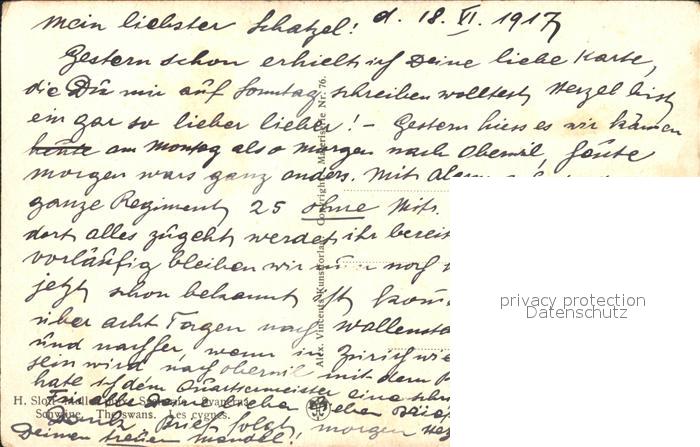 mein liebster Schatzel! d. 18. VI. 1917
Gestern schon erhielt ich Deine liebe Karte,
die Du mir auf Sonntag schreiben wolltest. Herzel bist
ein gar so lieber lieber! - Gestern hiess es wir kämen
heute am Montag also morgen nach Oberwil, heute
morgen wars ganz anders. Mit
ganze Regiment 25 ohne Mitr.
dort alles zugeht werdet ihr bereits
vorläufig bleiben wir nun noch
jetzt schon bekannt ist
über acht Tagen nach Wallensta
und nachher, wenn in Zürich wie
sein wird nach Oberwil mit dem
hate ich dem Quartiermeister eine
Für alle Deine lieben lieben
Brief folgt, morgen
Deinen treuen
H. Sloff-Moll
Schwäne. The swans. Les cygnes.
Alex. Vincents Kunstverlag
Copyright
Malerische Nr. 76.
privacy protection
Datenschutz